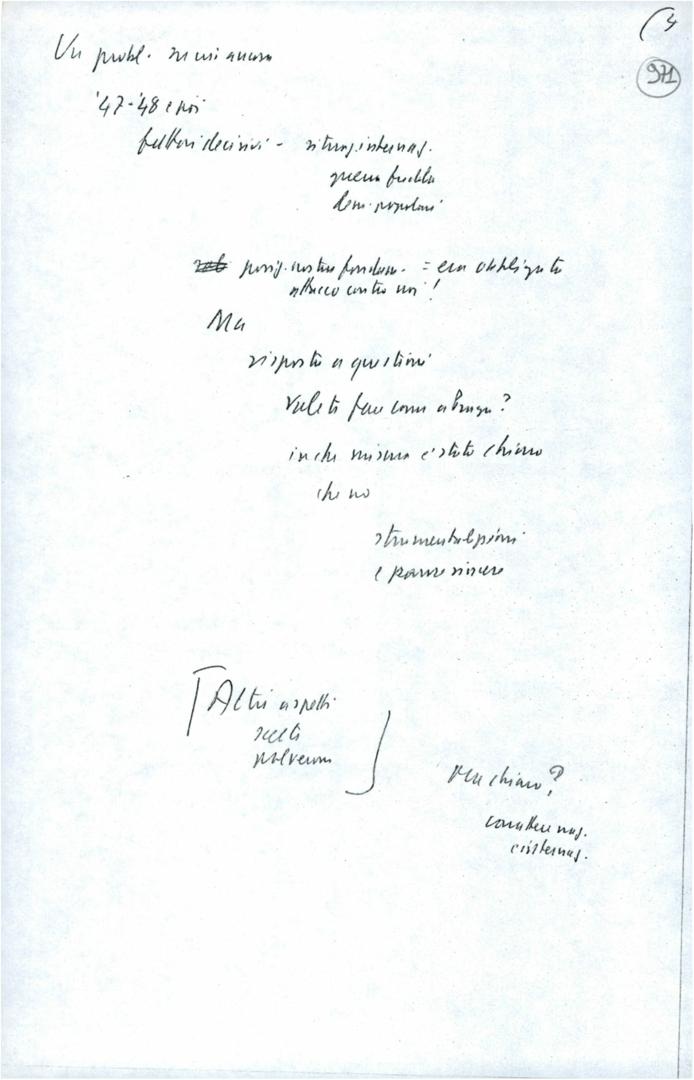 (4
971
Un probl. su cui ancora
'47-'48 e poi
fattori decisivi - situaz. internaz.
guerra fredda
dem. popolari
posiz. nostra fondam. = era obbligata
attacco contro noi!
Ma
risposta a questioni
Volete fare come a Praga?
in che misura c'è stata chiara
che no
strumentalizzazioni
e paure sincere
[Altri aspetti
scelti
polverone ]
era chiaro?
carattere naz.
e internaz.